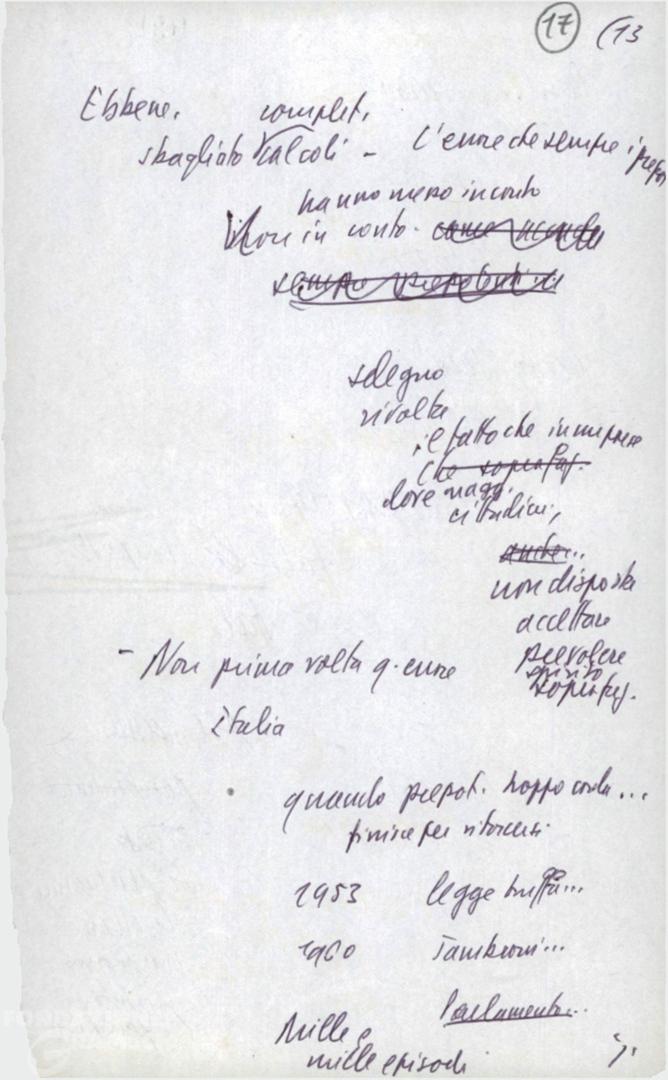 17 (13
Ebbene. complet.
sbagliato calcoli - L'errore che sempre i prepot
hanno messo in conto
Non in conto.
sdegno
rivolta
il fatto che in un paese
che sopraffaz.
dove magg.
cittadini,
anche...
non disposta
accettare
prevalere
spirito
sopraffaz.
- Non prima volta q. errore
Italia
quando prepot. troppo corda...
finisce per ritorcersi
1953 legge truffa...
1960 Tambroni...
Parlamento...
Mille e
mille episodi